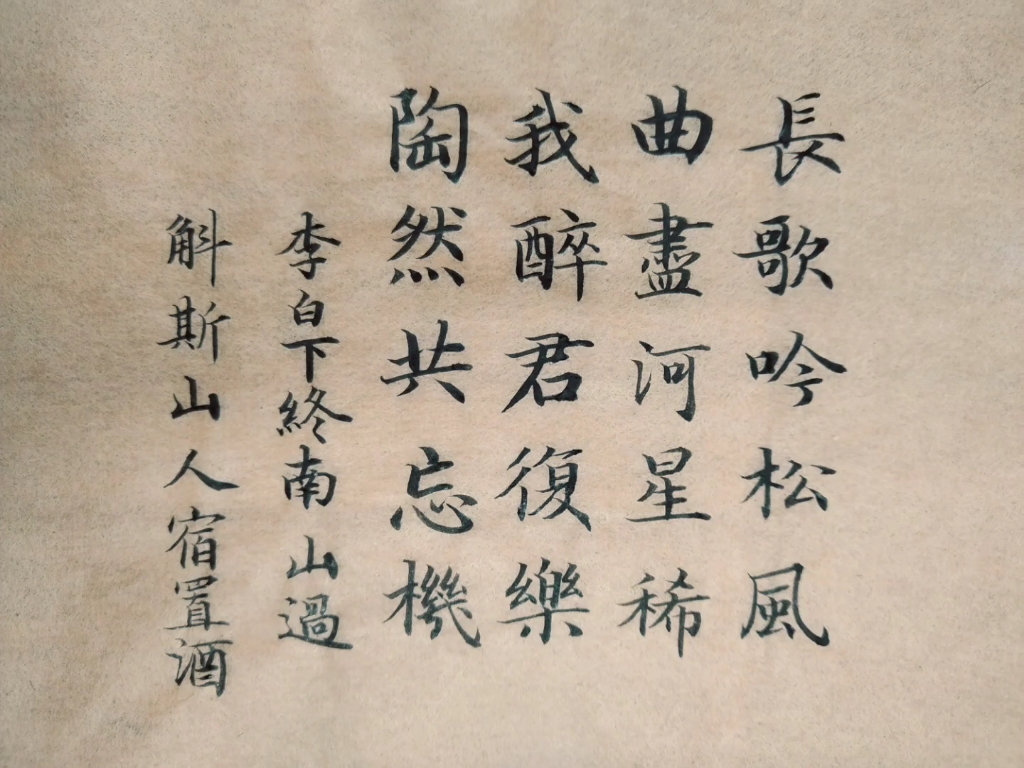 長歌吟松風
曲盡河星稀
我醉君復樂
陶然共忘機
李白下終南山過
斛斯山人宿置酒